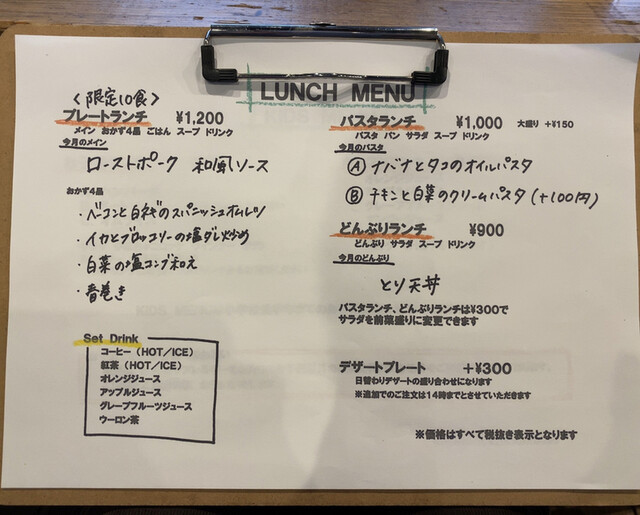 LUNCH MENU
〈限定10食〉
プレートランチ ¥1,200
メイン おかず4品 ごはん スープ ドリンク
今月のメイン
ローストポーク 和風ソース
おかず4品
・ベーコンと白ネギのスパニッシュオムレツ
・イカとブロッコリーの塩ダレ炒め
・白菜の塩コンブ和え
・春巻き
Set Drink
コーヒー（HOT／ICE）
紅茶（HOT／ICE）
オレンジジュース
アップルジュース
グレープフルーツジュース
ウーロン茶
パスタランチ ¥1,000 大盛り +¥150
パスタ パン サラダ スープ ドリンク
今月のパスタ
Ⓐ ナバナとタコのオイルパスタ
Ⓑ チキンと白菜のクリームパスタ（+100円）
どんぶりランチ ¥900
どんぶり サラダ スープ ドリンク
今月のどんぶり
とり天丼
パスタランチ、どんぶりランチは¥300で
サラダを前菜盛りに変更できます
デザートプレート +¥300
日替わりデザートの盛り合わせになります
※追加でのご注文は14時までとさせていただきます
※価格はすべて税抜き表示となります